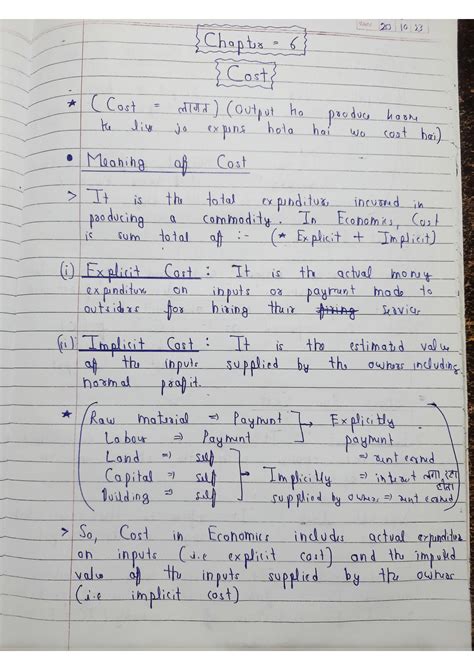 20 10 23
Chapter = 6
Cost
★ (Cost = लागत) (Output ko produce karne
ke liye jo expens hota hai wo cost hai)
• Meaning of Cost
> It is the total expenditure incurred in
producing a commodity. In Economics, Cost
is sum total of :- (* Explicit + Implicit)
(i) Explicit Cost : It is the actual money
expenditure on inputs or payment made to
outsiders for hiring their firing service
(ii) Implicit Cost : It is the estimated value
of the inputs supplied by the owners including
normal profit.
★ Raw material ⇒ Payment → Explicitly
Labour ⇒ Payment payment
Land ⇒ self ⇒ rent earned
Capital ⇒ self → Implicitly ⇒ interest
Building ⇒ self supplied by owner ⇒ rent earned
> So, Cost in Economics includes actual expenditure
on inputs (i.e explicit cost) and the imputed
value of the inputs supplied by the owners
(i.e implicit cost)